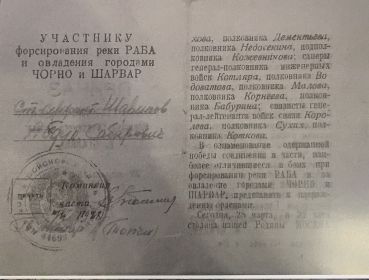 УЧАСТНИКУ
форсирования реки РАБА
и овладения городами
ЧОРНО и ШАРВАР
Шарипов
Сабирович
Командир
части
хова, полковника Дементьева,
полковника Недосекина, подпол-
ковника Кожевникова; саперы
генерал-полковника инженерных
войск Котляра, полковника Во-
доватова, полковника Малова,
полковника Корнеева, полковни-
ка Бабурина; связисты генерал-
лейтенанта войск связи Коро-
лева, полковника Сухих, полков-
ника
В ознаменование одержанной
победы соединения и части, наи-
более отличившиеся в боях при
форсировании реки РАБА и за
овладение городами ЧОРНО и
ШАРВАР, представить к награж-
дению орденами.
Сегодня, 28 марта, в
столица нашей Родины МОСКВА